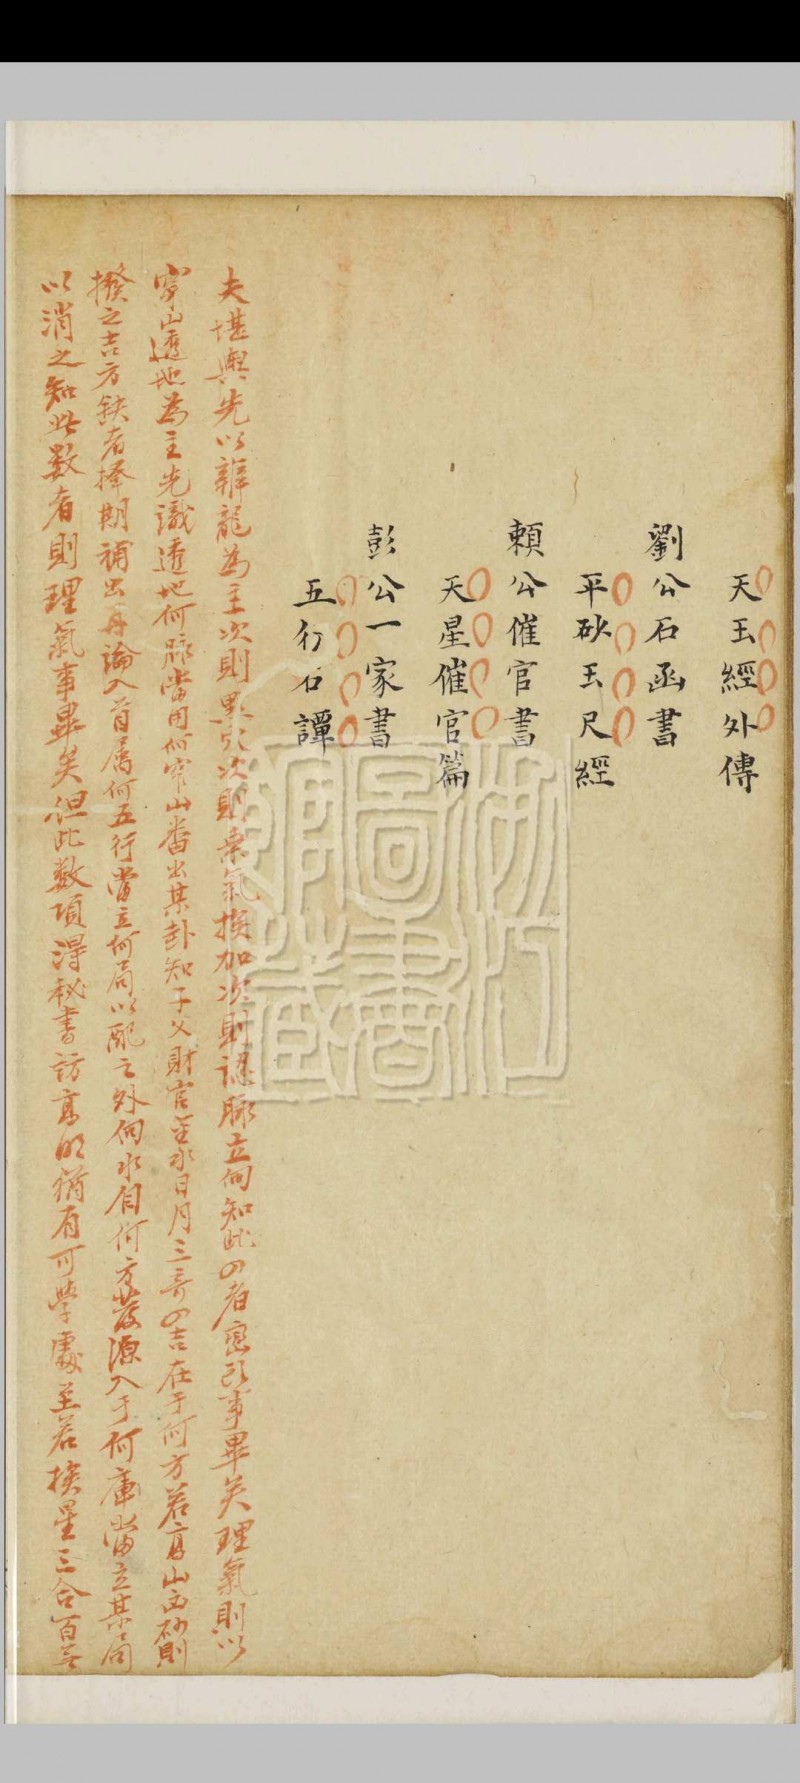 天玉經外傳
劉公石函書
平砂玉尺經
賴公催官書
天星催官篇
彭公一家書
五行石譚
夫堪輿先以辦龍為主次則點穴次則乘氣挨加次則認脈立向知此四者巒頭事畢矣理氣則以
穿山透地為主先識透地何脈當用何穿山番出某卦知子父財官呈水日月三奇四吉在于何方若高山西砂則
撥之吉方缺者擇期補出再論入首屬何五行當立何局以配之外向水自何方發源入于何庫當立某向
以消之知此數者則理氣事畢矣但此數項得秘書訪高明猶有可學處至若挨星三合百無